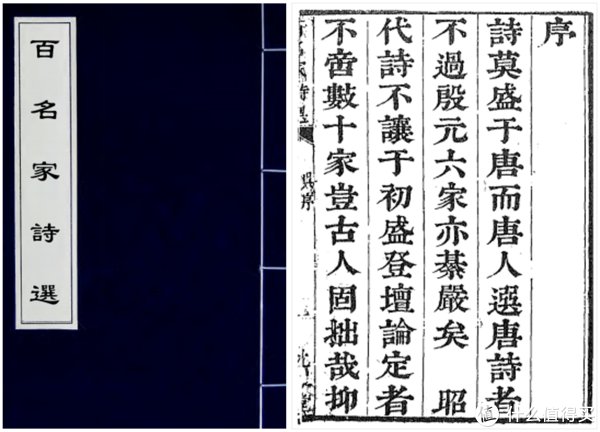 百名家詩選
序
詩莫盛于唐而唐人選唐詩者
不過殷元六家亦綦嚴矣 昭
代詩不讓于初盛登壇論定者
不啻數十家豈古人固拙哉抑
值 什么值得买